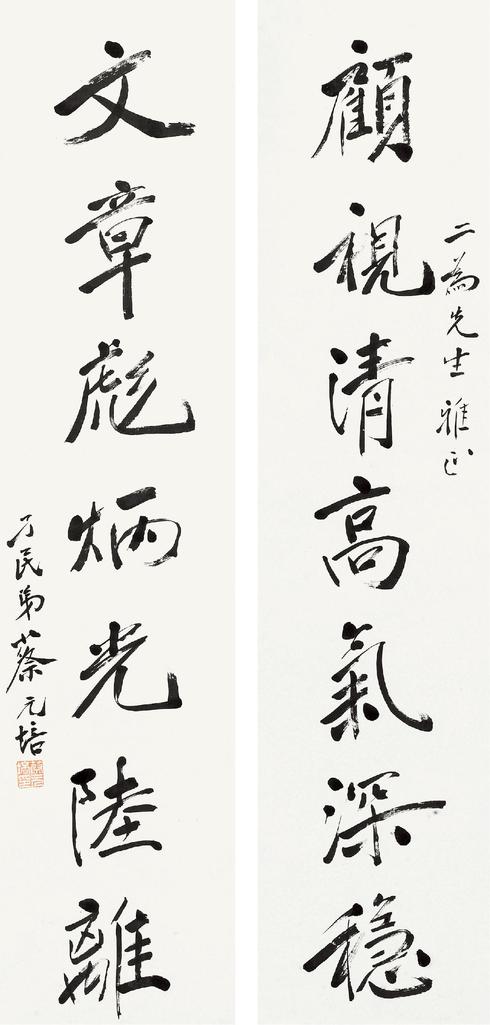 二為先生 雅正
顧視清高氣深穩
文章彪炳光陸離
孑民弟蔡元培